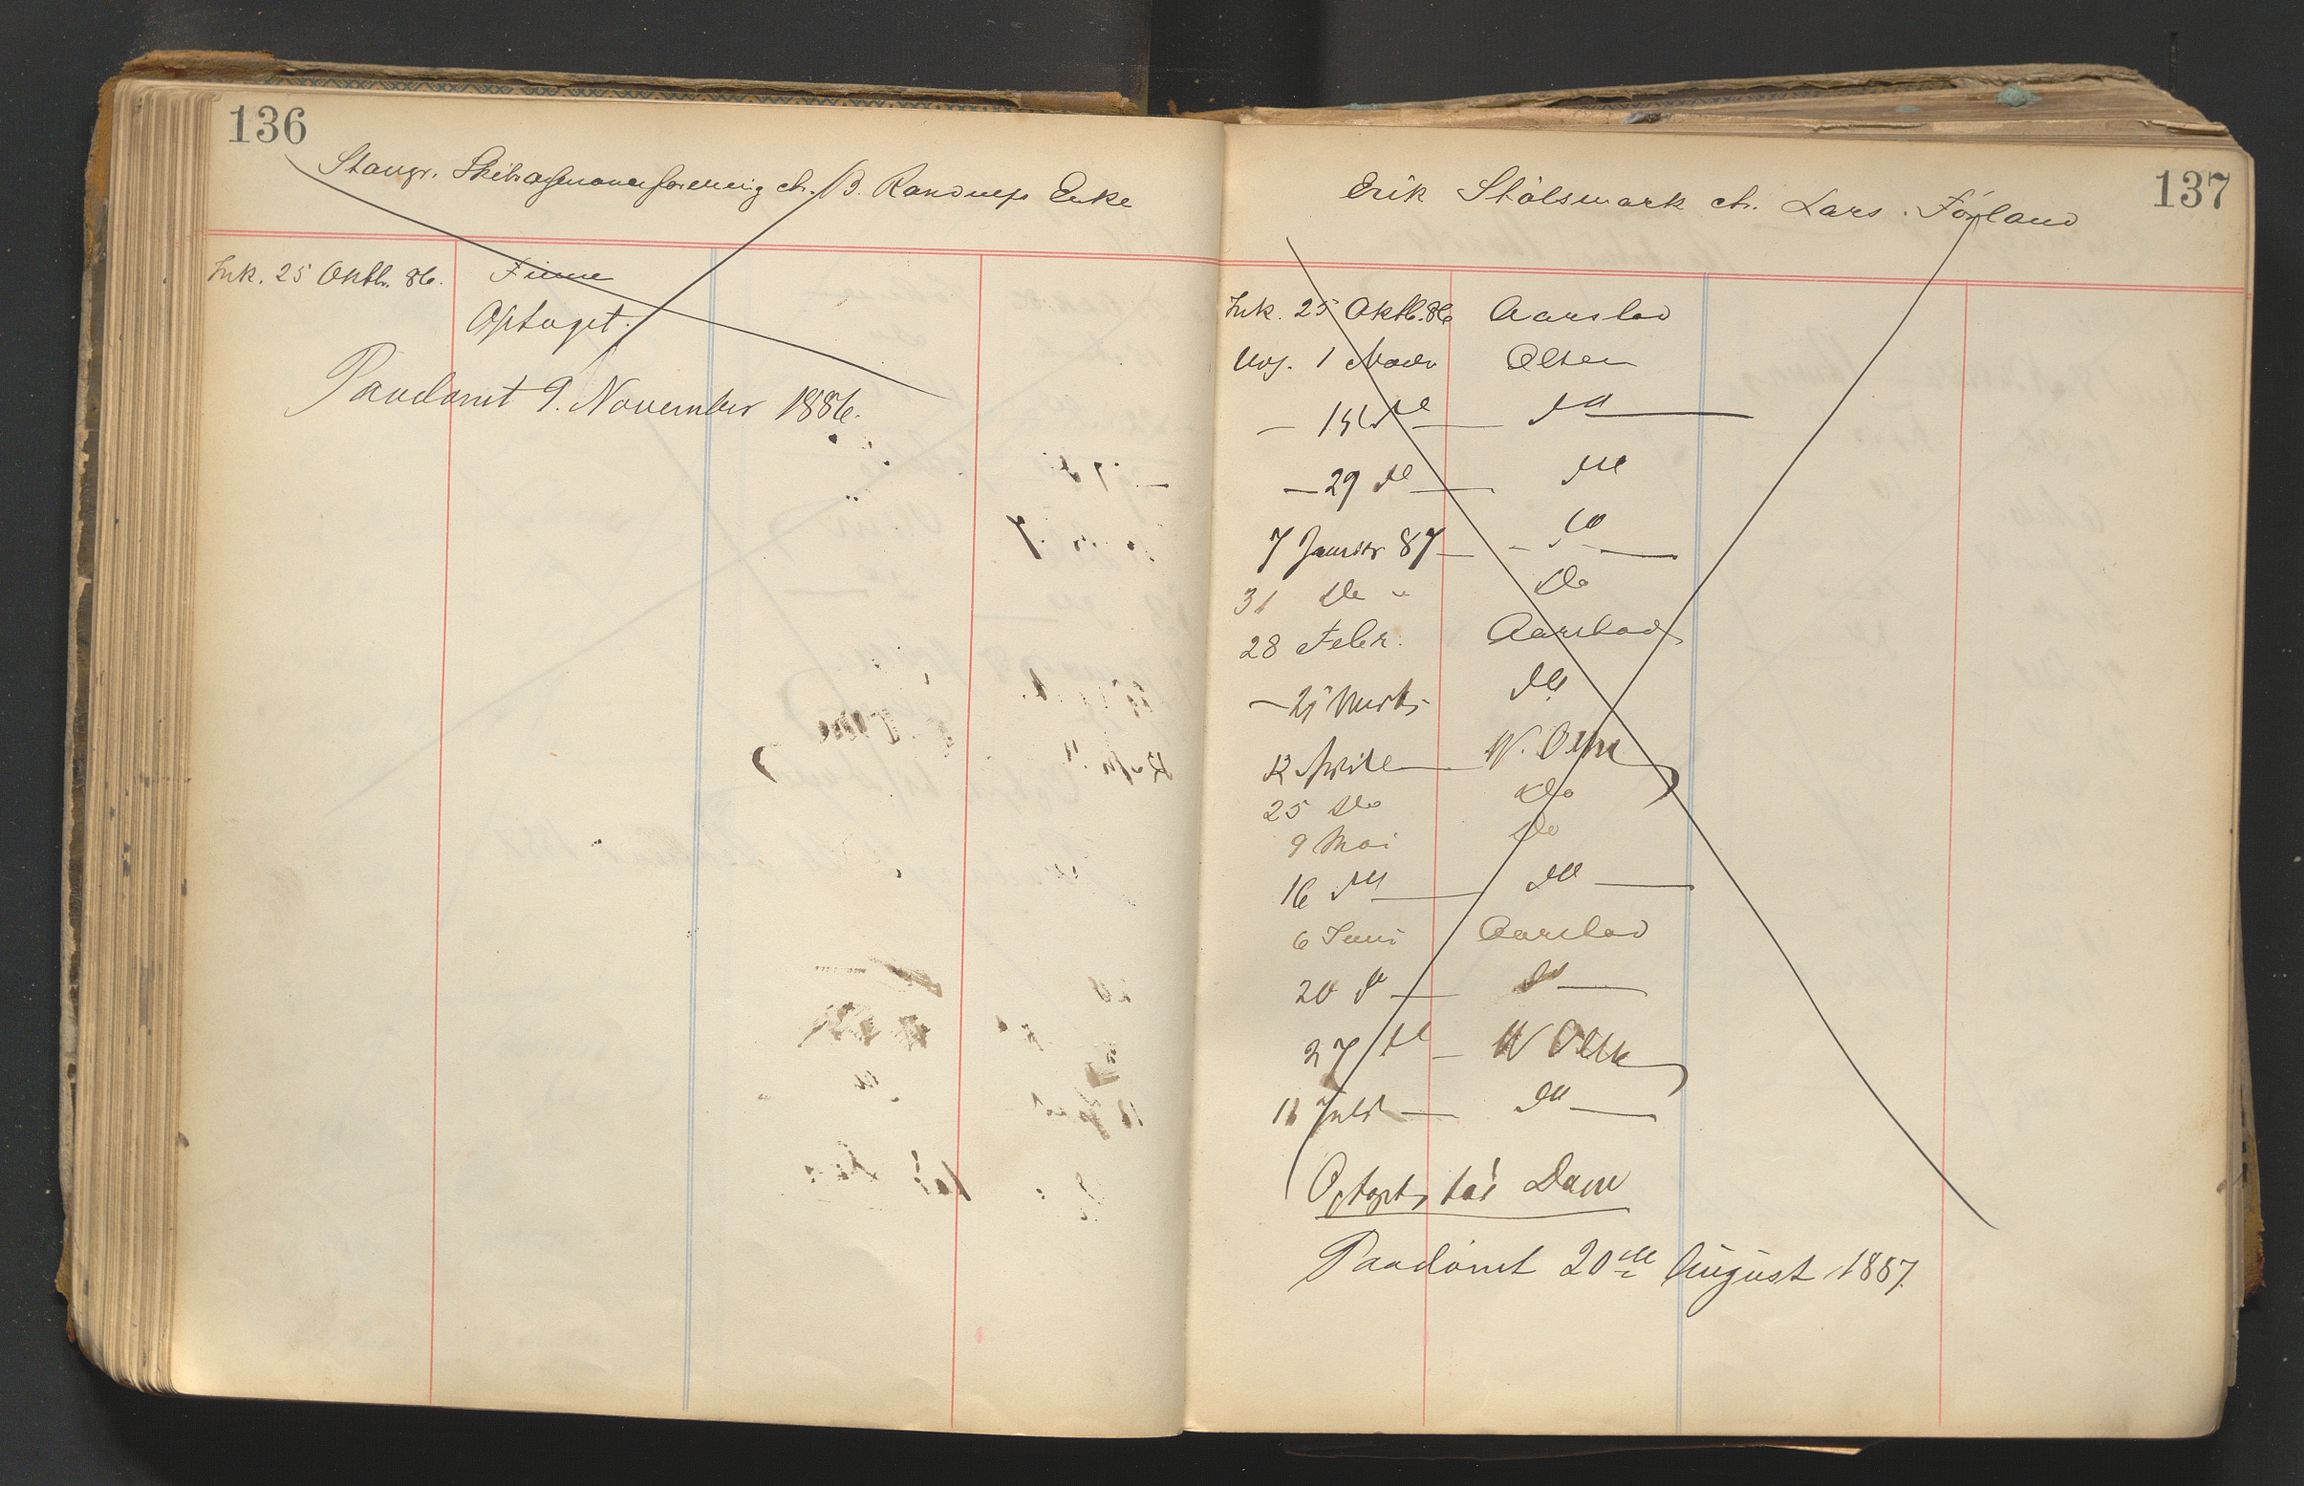 136
Stavgr. Skibsassuranceforening ctr. B. Randulfs Enke
Ink. 25 Oktb. 86. Finne
Optaget.
Paadømt 9. November 1886.
137
Erik Stålsmark ctr. Lars Førland
Ink. 25 Oktb. 86 Aarstad
Uds. 1 Novbr Olsen
— 15 do — do —
— 29 do — do
7 Januar 87 — do —
31 do " do
28 Febr. Aarstad
— 21 Marts do
12 April — W. Olsen
25 do do
9 Mai do
16 do — do —
6 Juni Aarstad
20 do — do —
27 do — W Olsen
11 Juli — do —
Optaget til Dom
Paadømt 20de August 1887.